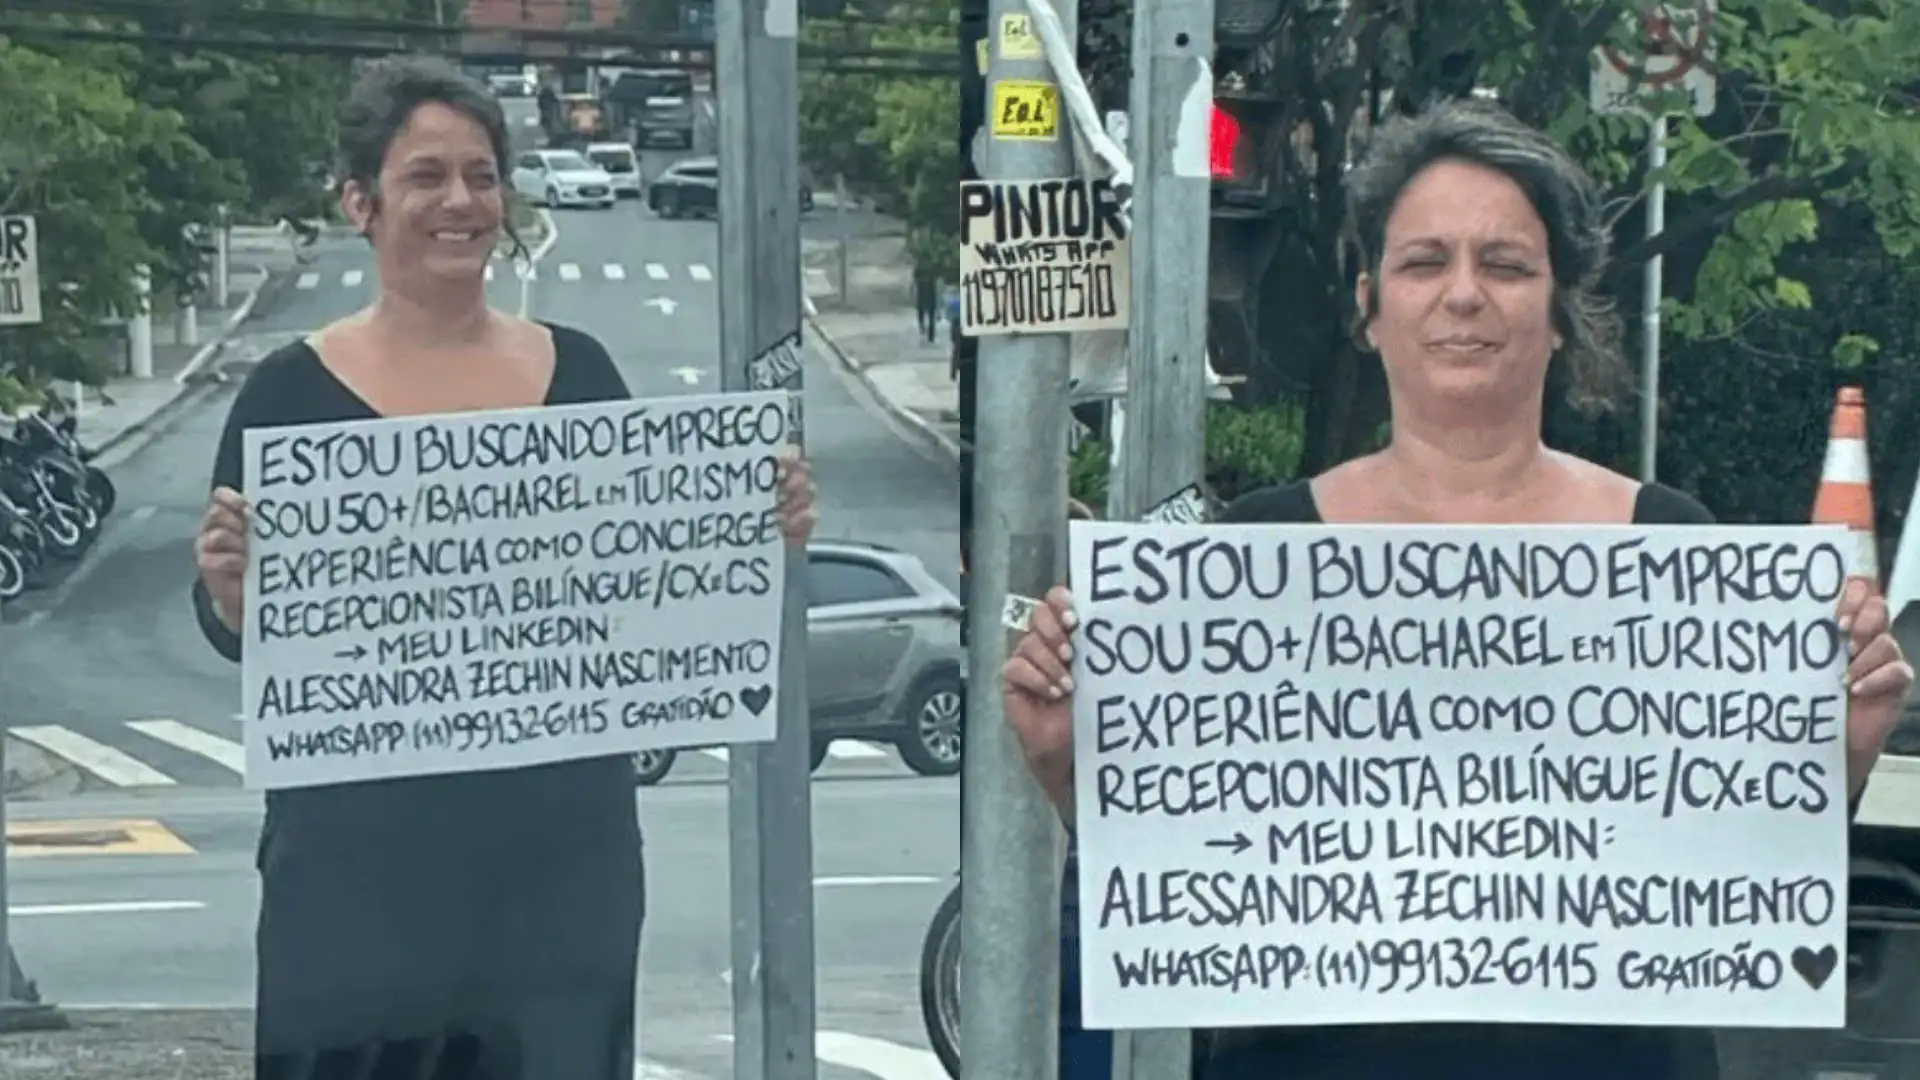 OR
ESTOU BUSCANDO EMPREGO
SOU 50+/BACHAREL EM TURISMO
EXPERIÊNCIA COMO CONCIERGE
RECEPCIONISTA BILÍNGUE/CX E CS
→ MEU LINKEDIN:
ALESSANDRA ZECHIN NASCIMENTO
WHATSAPP: (11) 99132-6115 GRATIDÃO ♥
EQL
PINTOR
WHATSAPP
11970187510
ESTOU BUSCANDO EMPREGO
SOU 50+/BACHAREL EM TURISMO
EXPERIÊNCIA COMO CONCIERGE
RECEPCIONISTA BILÍNGUE/CX E CS
→ MEU LINKEDIN:
ALESSANDRA ZECHIN NASCIMENTO
WHATSAPP: (11) 99132-6115 GRATIDÃO ♥